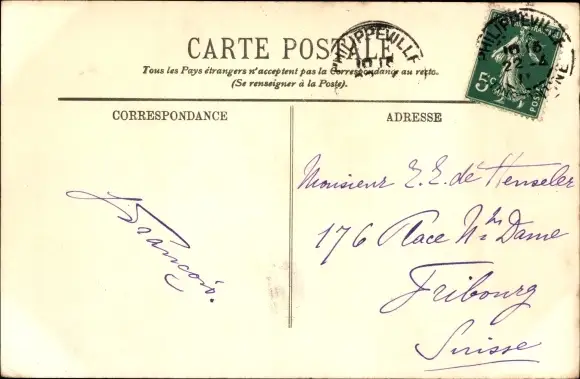 CARTE POSTALE
Tous les Pays étrangers n'acceptent pas la Correspondance au recto.
(Se renseigner à la Poste).
PHILIPPEVILLE
PHILIPPEVILLE
22
5c
POS
CORRESPONDANCE
ADRESSE
Monsieur E. E. de Henseler
176 Place N. Dame
Fribourg
Suisse
François